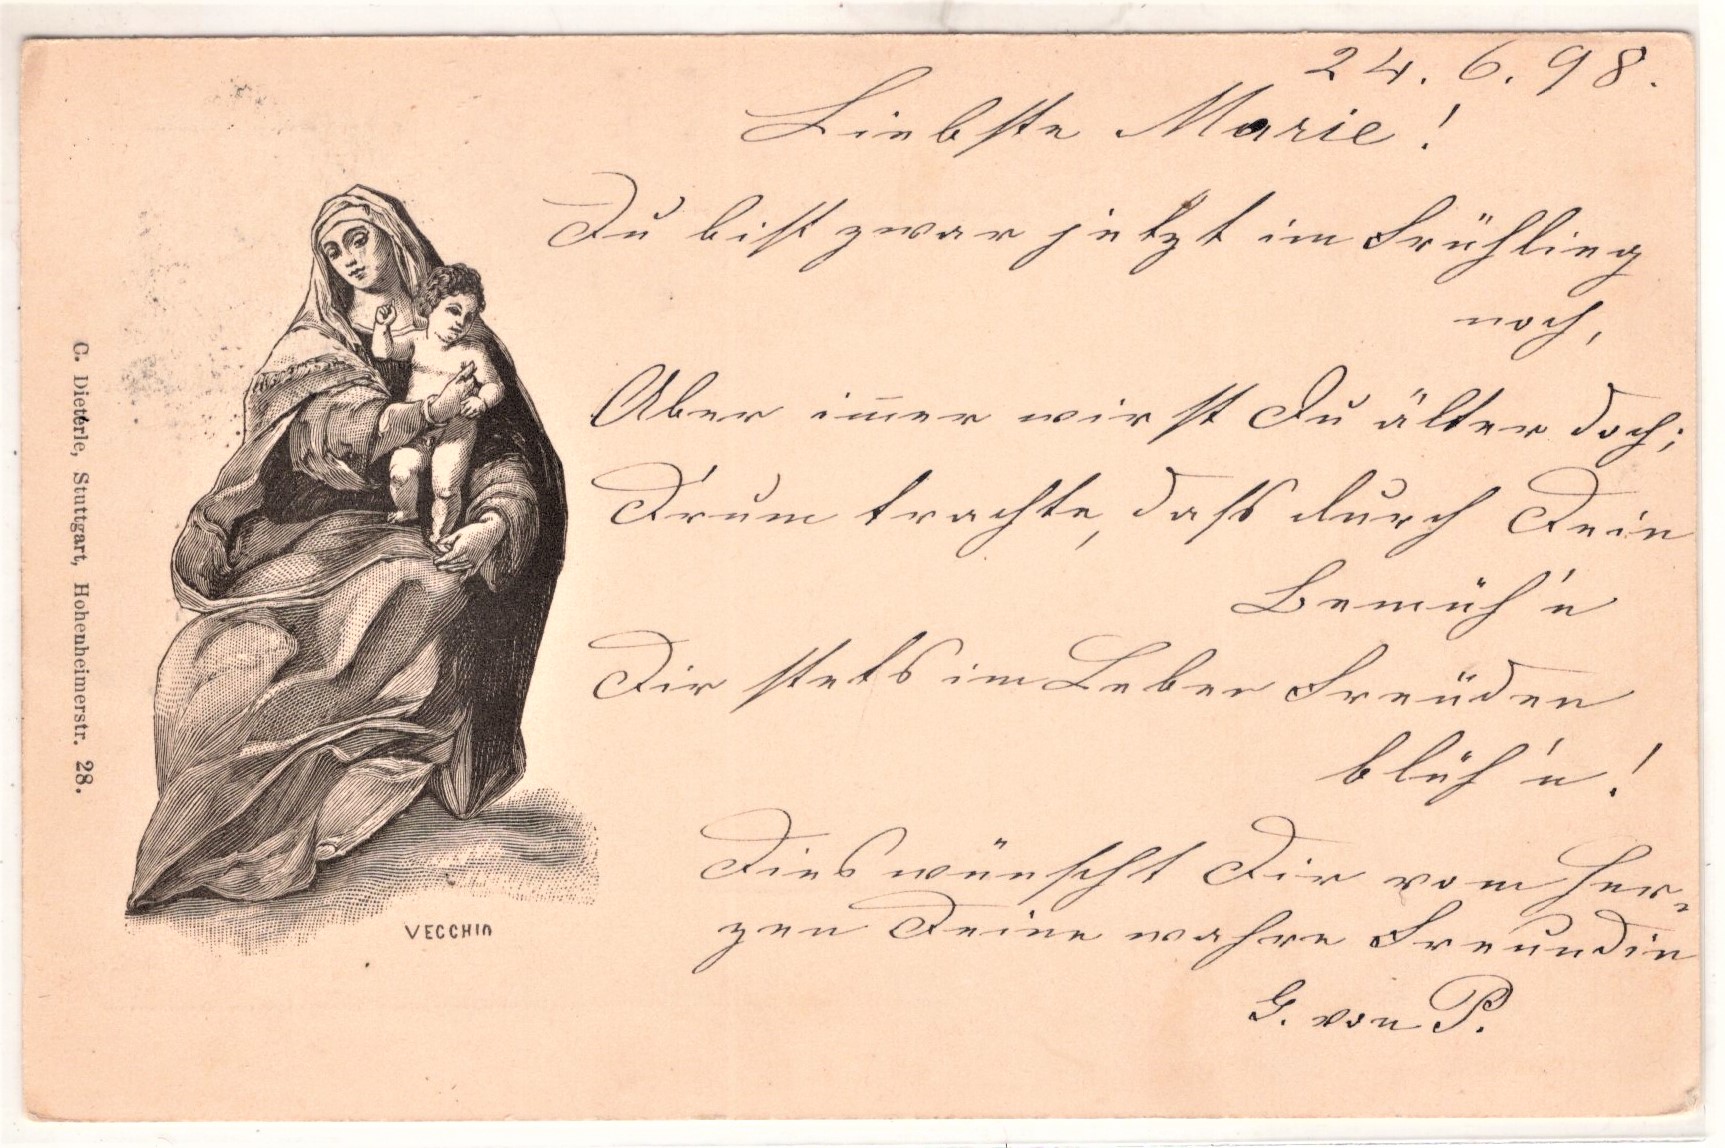 24. 6. 98.
Liebste Marie!
Du bist zwar jetzt im Frühling
noch,
Aber im̄er wirst Du älter doch;
D'rum trachte, dass durch Dein
Bemüh'n
Dir stets im Leben Freuden
blüh'n!
Dies wünscht Dir vom Her-
zen Deine wahre Freundin
G. von P.
VECCHIO
C. Dieterle, Stuttgart, Hohenheimerstr. 28.